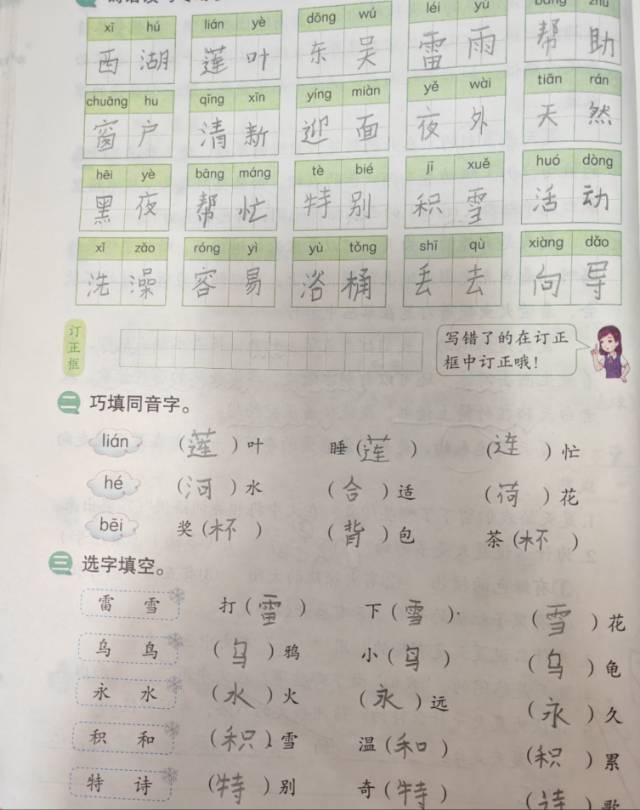 xī hú lián yè dōng wú léi yǔ
西湖 莲叶 东吴 雷雨 帮助
chuāng hu qīng xīn yíng miàn yè wài tiān rán
窗户 清新 迎面 夜外 天然
hēi yè bāng máng tè bié jī xuě huó dòng
黑夜 帮忙 特别 积雪 活动
xǐ zǎo róng yì yù tǒng shī qù xiàng dǎo
洗澡 容易 浴桶 丢去 向导
订正框
写错了的在订正
框中订正哦！
二 巧填同音字。
lián （莲）叶 睡（莲） （连）忙
hé （河）水 （合）适 （荷）花
bēi 奖（杯） （背）包 茶（杯）
三 选字填空。
雷 雪 打（雷） 下（雪） （雪）花
乌 鸟 （乌）鸦 小（鸟） （乌）龟
永 水 （水）火 （永）远 （永）久
积 和 （积）雪 温（和） （积）累
特 诗 （特）别 奇（特） （诗）歌